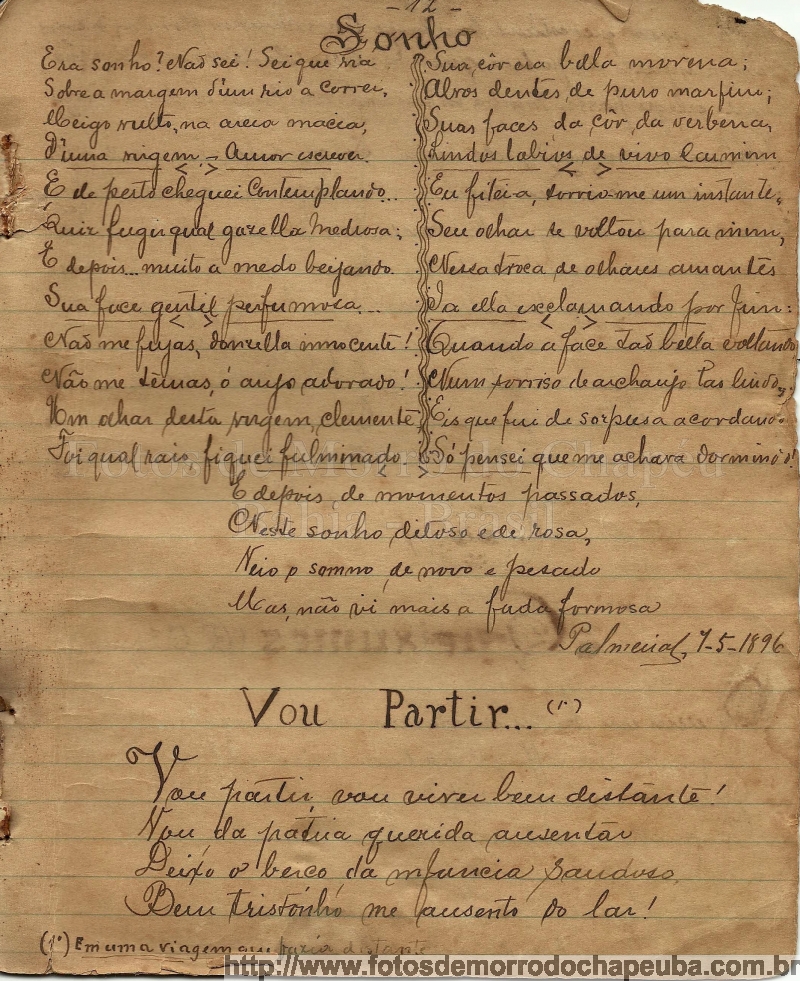 - 12 -
Sonho
Era sonho? Não sei! Sei que via
Sobre a margem d'um rio a correr,
Meigo vulto, na areia macia,
D'uma virgem - Amor escrever.
E de perto cheguei contemplando...
Quiz fugir qual gazella medrosa;
E depois... muito a medo beijando
Sua face gentil perfumosa...
Não me fujas, donzella innocente!
Não me temas, ó anjo adorado!
Um olhar desta virgem, clemente,
Foi qual raio, fiquei fulminado
Sua côr era bella morena;
Alvos dentes, de puro marfim;
Suas faces da côr, da verbena,
Lindos labios, de vivo carmim
Eu fitei-a, sorrio-me um instante,
Seu olhar se voltou para mim,
Nessa troca de olhares amantes
Ia ella exclamando por fim:
Quando a face tão bella voltando
Num sorriso de archanjo tão lindo,
Eis que fui de sorpresa acordando
Só pensei que me achava dormindo!
E depois, de momentos passados,
Neste sonho ditoso e de rosa,
Veio o somno, de novo e pesado
Mas, não vi mais a fada formosa
Palmeiral, 7-5-1896
Vou Partir... (1º)
Vou partir, vou viver bem distante!
Vou da patria querida ausentar
Deixo o berço da infancia saudoso,
Bem tristonho me ausento do lar!
(1º) Em uma viagem que fazia distante
http://www.fotosdemorrodochapeuba.com.br